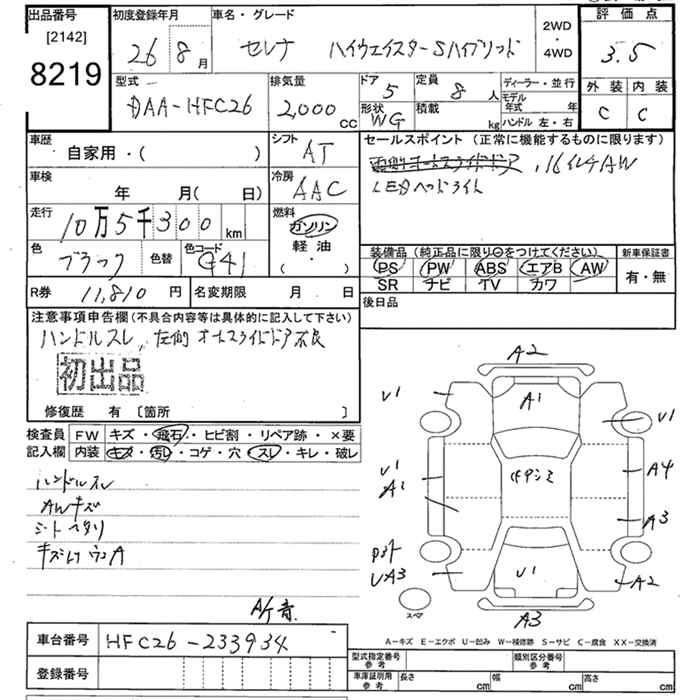 出品番号
[2142]
8219
初度登録年月
26 8月
車名・グレード
セレナ ハイウェイスターSハイブリッド
2WD・4WD
評価点
3.5
外装 内装
C C
型式
DAA-HFC26
排気量
2,000cc
ドア 5
定員 8人
形状 WG
積載 kg
ディーラー・並行
モデル年式 年
ハンドル 左・右
車歴
自家用・( )
シフト
AT
セールスポイント (正常に機能するものに限ります)
両側オートスライドドア, 16インチAW
LEDヘッドライト
車検
年 月( 日)
冷房
AAC
走行
10万5千300km
燃料
ガソリン
軽油
( ・ )
色
ブラック
色替
色コード
G41
装備品 (純正品に限り○をつけてください)
PS PW ABS エアB AW
SR ナビ TV カワ
新車保証書
有・無
R券 11,810円
名変期限 月 日
後日品
注意事項申告欄(不具合内容等は具体的に記入して下さい)
ハンドルスレ, 左側オートスライドドア不良
初出品
修復歴 有 [箇所 ]
検査員記入欄
FW キズ・飛石・ヒビ割・リペア跡・×要
内装 キズ・汚レ・コゲ・穴・スレ・キレ・破レ
ハンドルスレ
AWキズ
シートヘタリ
A2
U1
A1
U1
U1
A1
A4
A3
UA3
U1
A2
A3
スペア
A-キズ E-エクボ U-凹み W-補修跡 S-サビ C-腐食 XX-交換済
車台番号 HFC26-233934
登録番号
型式指定番号 参考
類別区分番号 参考
車庫証明用 参考
長さ cm 幅 cm 高さ cm